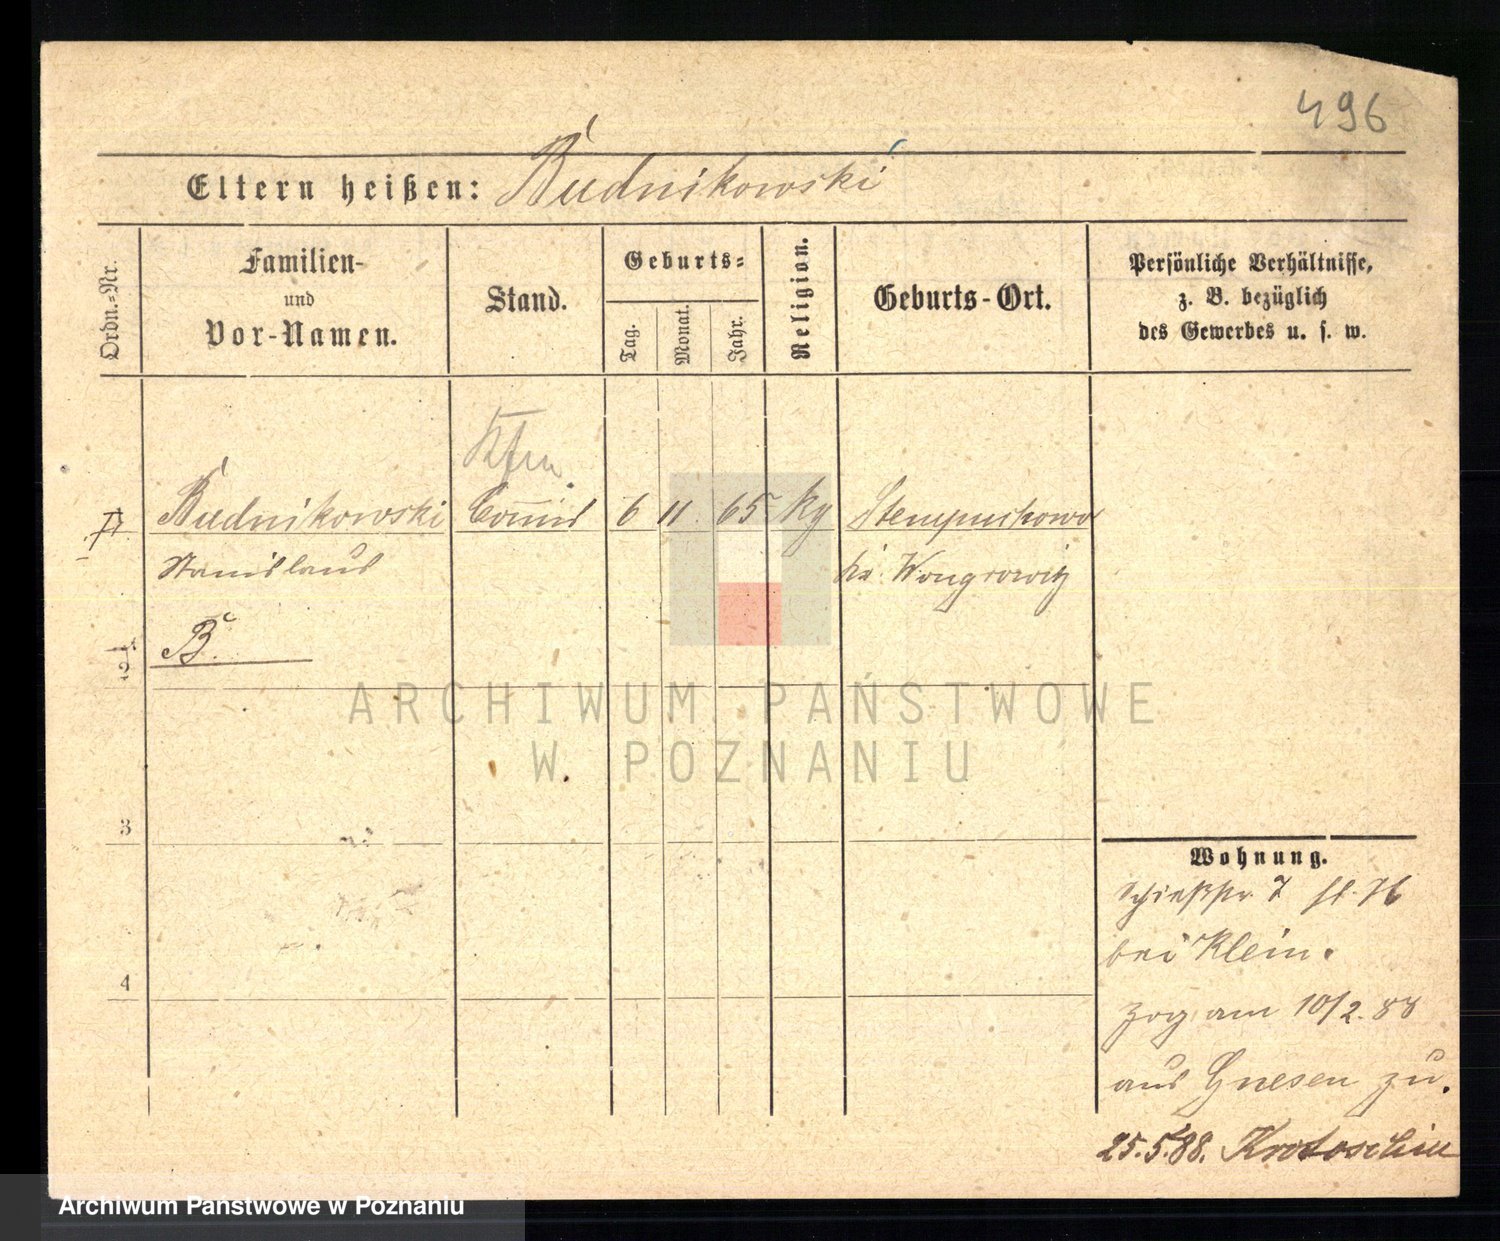 496
Eltern heißen: Budnikowski
Ordn.=Nr.
Familien-
und
Vor-Namen.
Stand.
Geburts=
Tag.
Monat.
Jahr.
Religion.
Geburts-Ort.
Persönliche Verhältnisse,
z. B. bezüglich
des Gewerbes u. s. w.
Kfm
Budnikowski Commis 6 11 65 kg Stempuchowo
Stanislaus Kr. Wongrowitz
B.
2
3
4
Wohnung.
Schießstr. 7
bei Klein.
Zog am 10/2. 88
aus Gnesen zu.
25.5.88. Krotoschin
ARCHIWUM PAŃSTWOWE
W POZNANIU
Archiwum Państwowe w Poznaniu